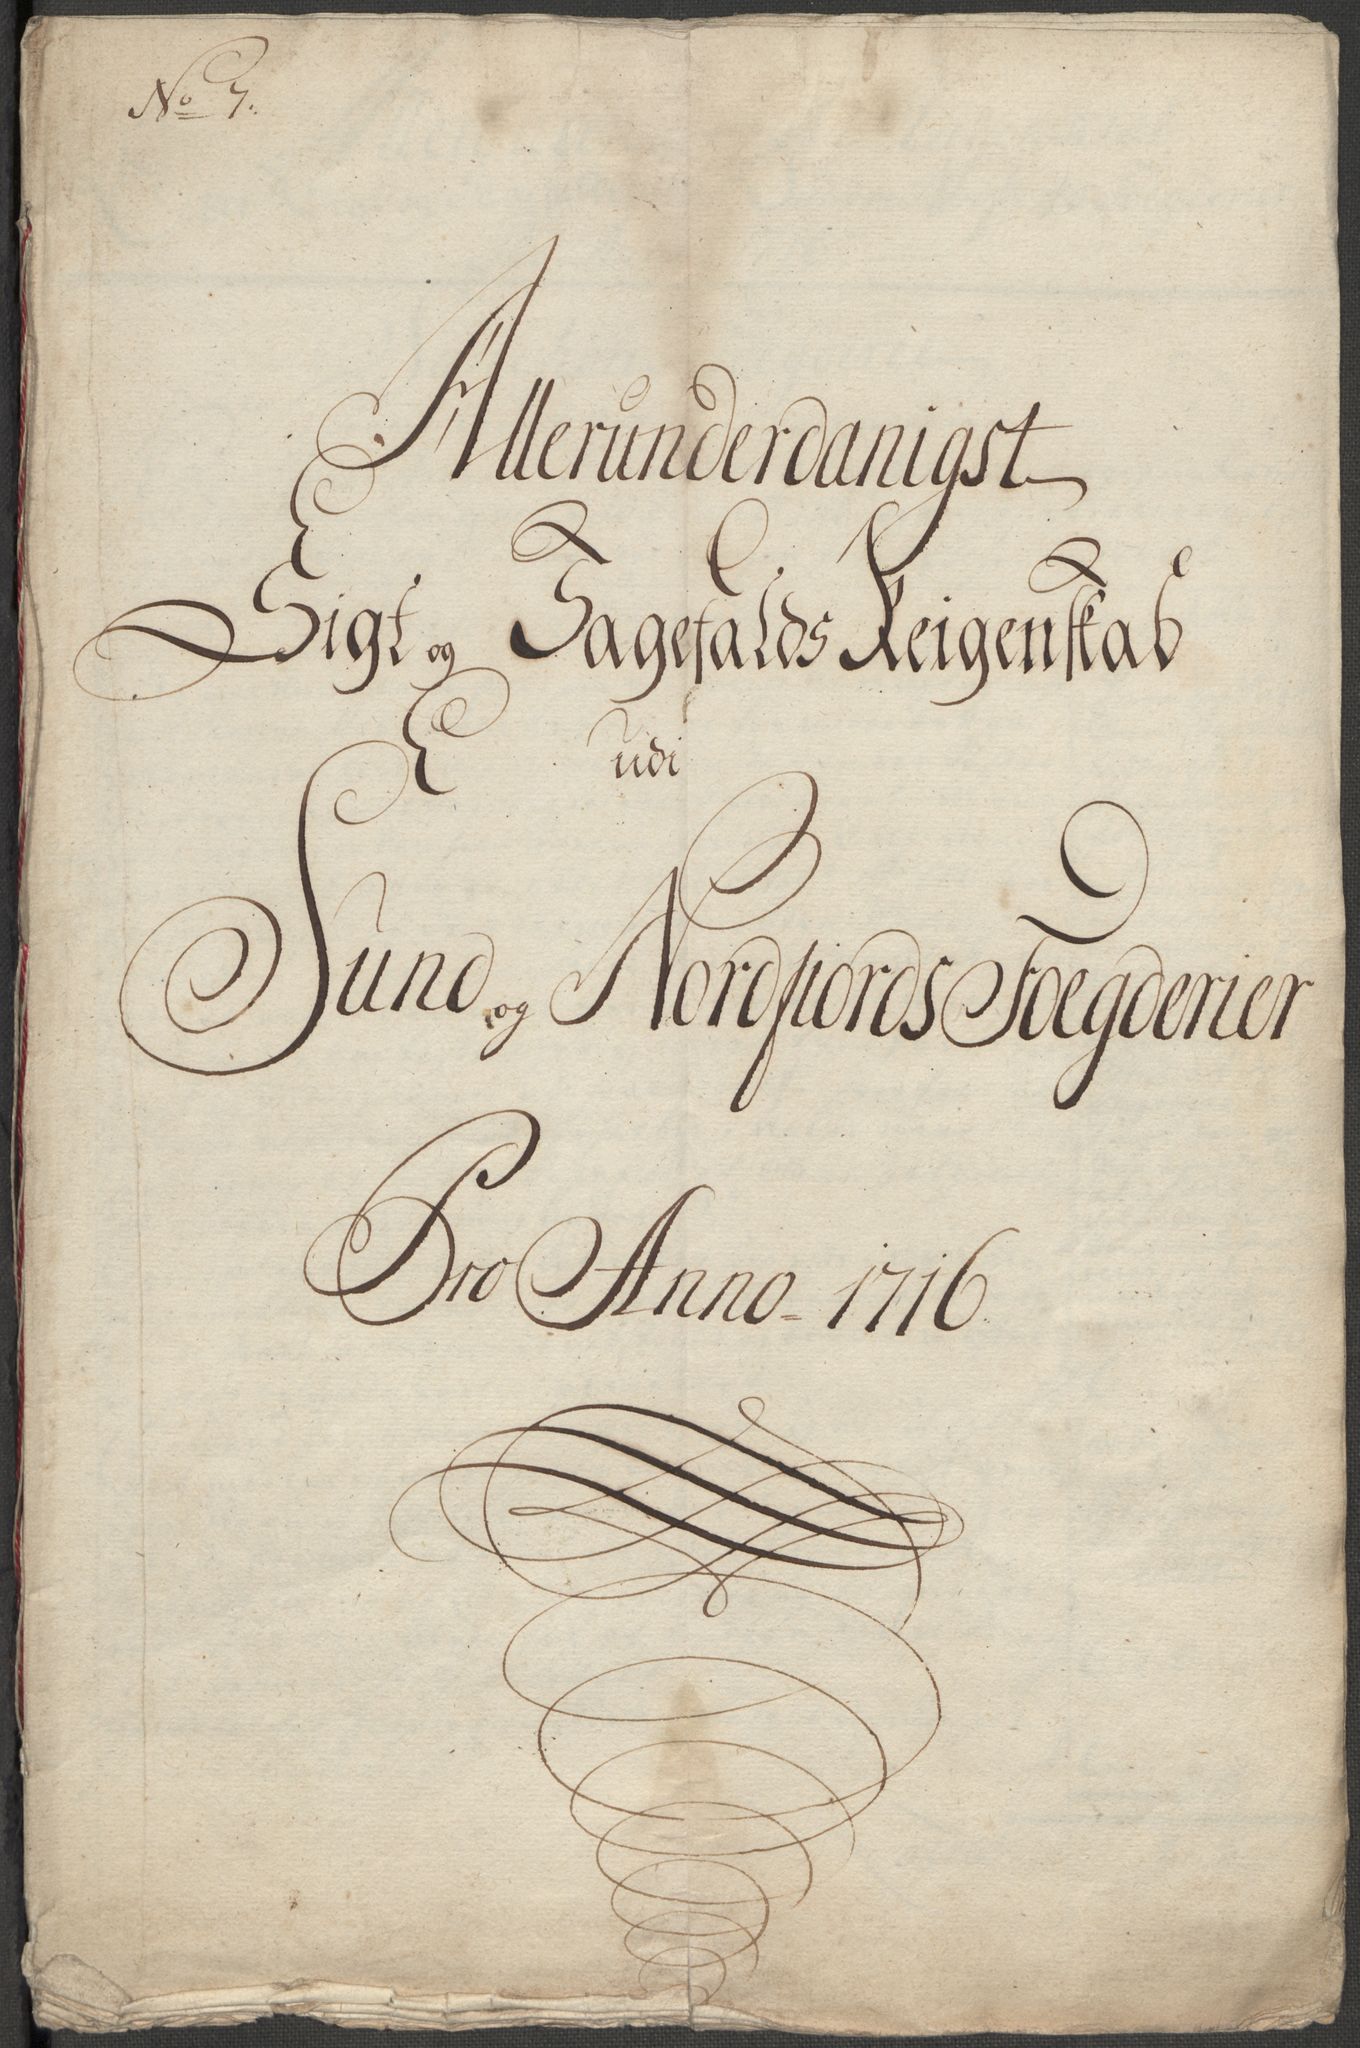 No 7.
Allerunderdanigst
Sigt og Sagefalds Reigenskab
udi
Sund og Nordfiords Foegderier
Pro Anno 1716.